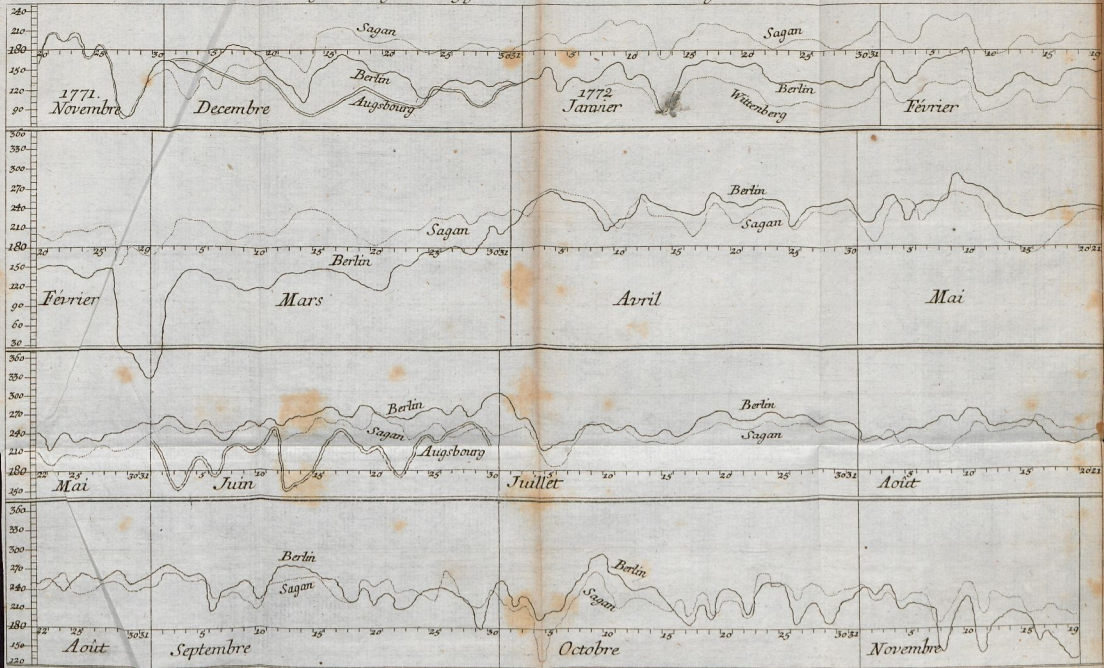 240
210
180
150
120
90
20 25 30 5 10 15 20 25 30 31 5 10 15 20 25 30 31 5 10 15 19
Sagan
Sagan
Berlin
Augsbourg
Berlin
Wittenberg
1771.
Novembre
Decembre
1772
Janvier
Février
360
330
300
270
240
210
180
150
120
90
60
30
20 25 29 5 10 15 20 25 30 31 5 10 15 20 25 30 5 10 15 20 21
Berlin
Sagan
Sagan
Berlin
Février
Mars
Avril
Mai
360
330
300
270
240
210
180
150
22 25 30 31 5 10 15 20 25 30 5 10 15 20 25 30 31 5 10 15 20 21
Berlin
Berlin
Sagan
Sagan
Augsbourg
Mai
Juin
Juillet
Août
360
330
300
270
240
210
180
150
120
22 25 30 31 5 10 15 20 25 30 5 10 15 20 25 30 31 5 10 15 19
Berlin
Berlin
Sagan
Sagan
Août
Septembre
Octobre
Novembre